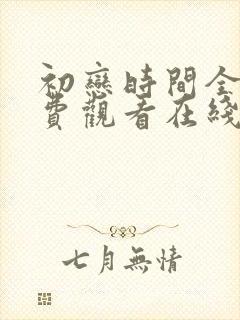 初戀時間全
費觀看在綫
七月無情